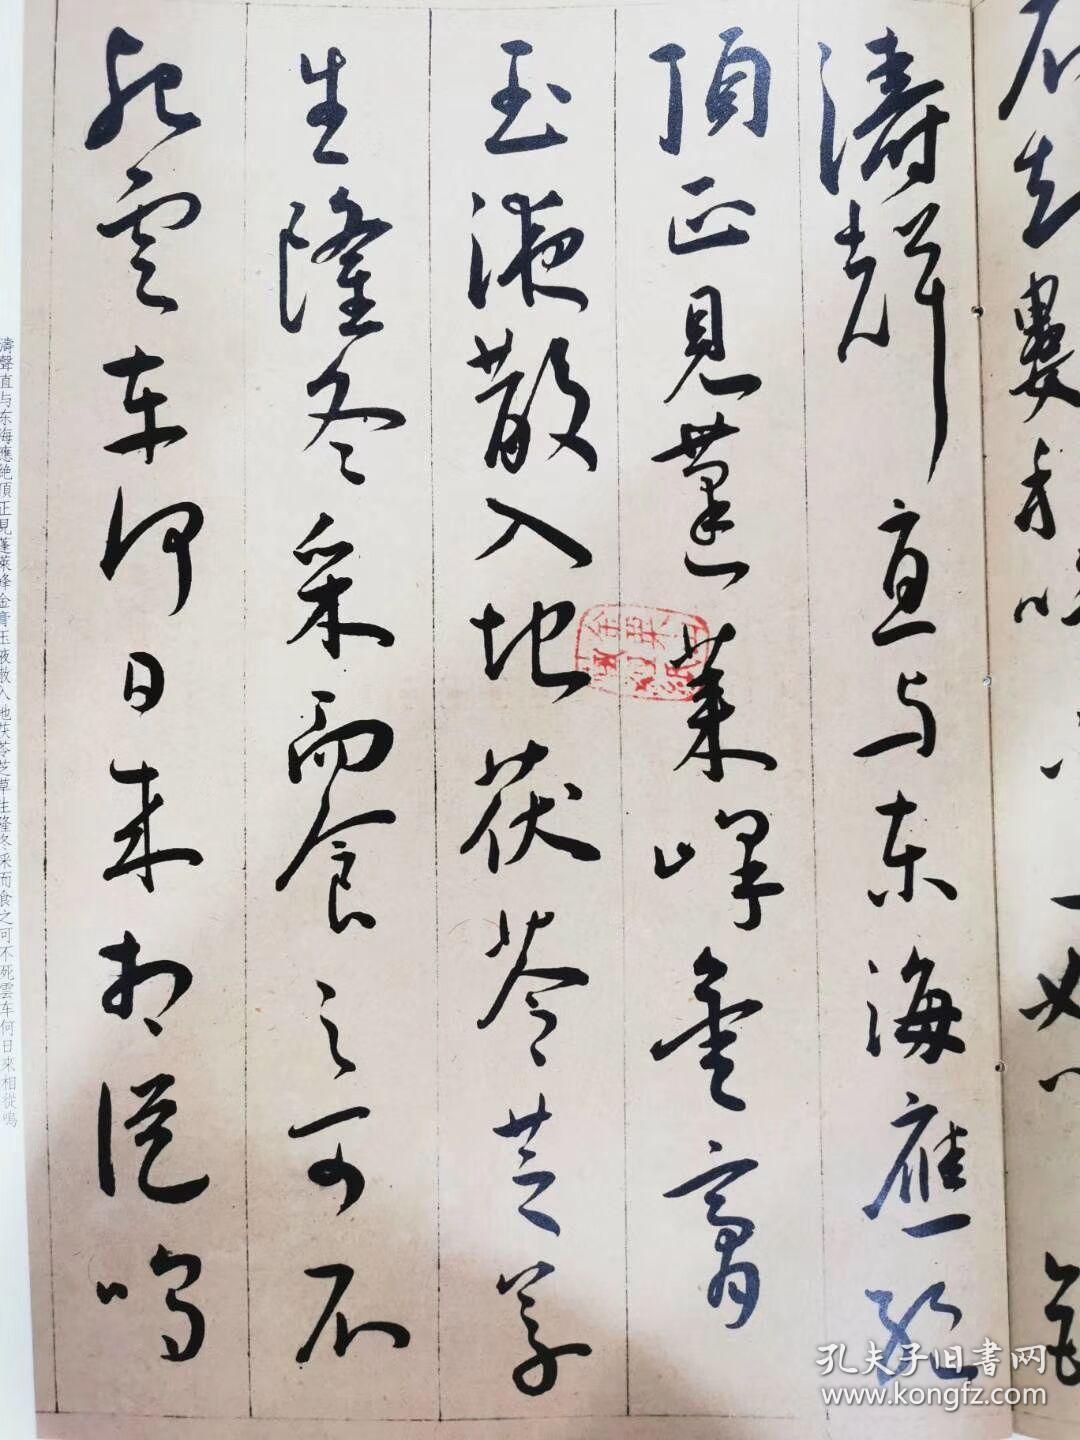 濤聲直与东海應絶
頂正見蓬萊峰金膏
玉液散入地茯苓芝草
生隆冬采而食之可不
死雲车何日来相從嗚
濤聲直与东海應絶頂正見蓬萊峰金膏玉液散入地茯苓芝草生隆冬采而食之可不死雲车何日来相從嗚
孔夫子旧書网
www.kongfz.com